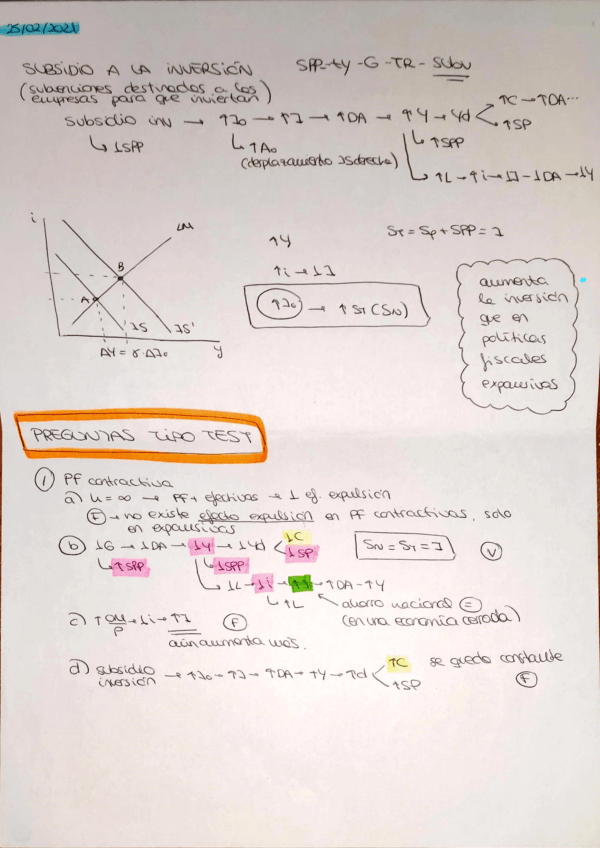 25/02/2021
SUBSIDIO A LA INVERSIÓN
(subvenciones destinadas a las
empresas para que inviertan)
SPP = ty - G - TR - SUBN
Subsidio inv → ↑I₀ → ↑I → ↑DA → ↑Y → Yd
↑C → ↑DA...
↑SP
↳ ↓SPP
↳ ↑A₀
(desplazamiento IS derecha)
↳ ↑SPP
↳ ↑L → ↑i → ↓I → ↓DA → ↓Y
i
LM
B
A
IS
IS'
ΔY = γ · ΔI₀
y
↑Y
↑i → ↓I
↑I₀ → ↑ST (SN)
ST = Sp + SPP = I
aumenta
la inversión
que en
políticas
fiscales
expansivas
PREGUNTAS TIPO TEST
① PF contractiva
a) u = ∞ → PF + efectivas → ↓ ef. expulsión
Ⓕ → no existe efecto expulsión en PF contractivas, solo
en expansivas
ⓑ ↓G → ↓DA → ↓Y → ↓Yd
↓C
↓SP
SN = ST = I
Ⓥ
↳ ↑SPP
↳ ↓SPP
↳ ↓L → ↓i → ↑I → ↑DA → ↑Y
↳ ↑L
ahorro nacional ⊜
(en una economía cerrada)
c) ↑OM/P → ↓i → ↑I Ⓕ
aún aumenta más.
d) subsidio
inversión → ↑I₀ → ↑I → ↑DA → ↑Y → ↑d
↑C se queda constante
↑SP
Ⓕ